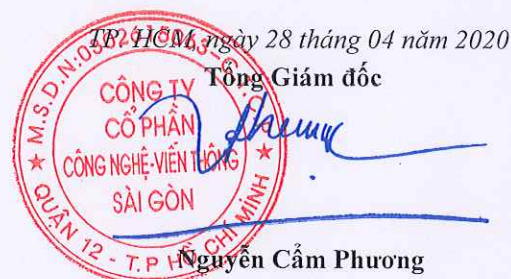 TP. HCM, ngày 28 tháng 04 năm 2020
Tổng Giám đốc
CÔNG TY
CỔ PHẦN
CÔNG NGHỆ-VIỄN THÔNG
SÀI GÒN
QUẬN 12 - T.P HỒ CHÍ MINH
Nguyễn Cẩm Phương